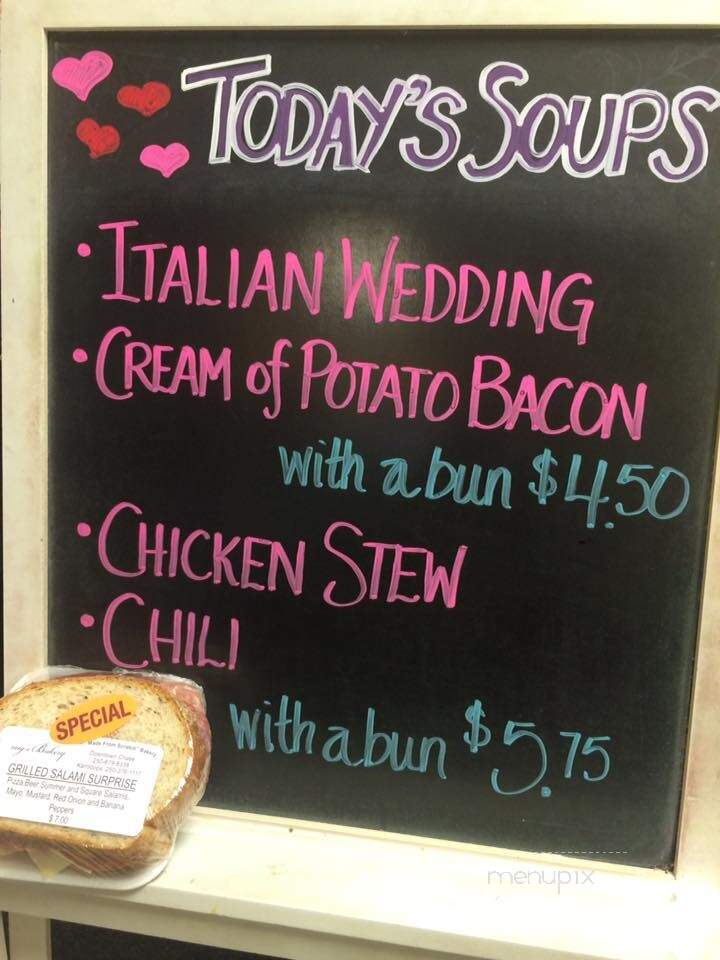 TODAY'S SOUPS
• ITALIAN WEDDING
• CREAM of POTATO BACON
with a bun $4.50
• CHICKEN STEW
• CHILI
with a bun $5.75
SPECIAL
Bakery
Made From Scratch Bakery
Downtown Chase
250-819-8338
Kamloops 250-376-1117
GRILLED SALAMI SURPRISE
Pizza,Beer Summer and Square Salamis,
Mayo, Mustard, Red Onion and Banana
Peppers
$7.00
menupix